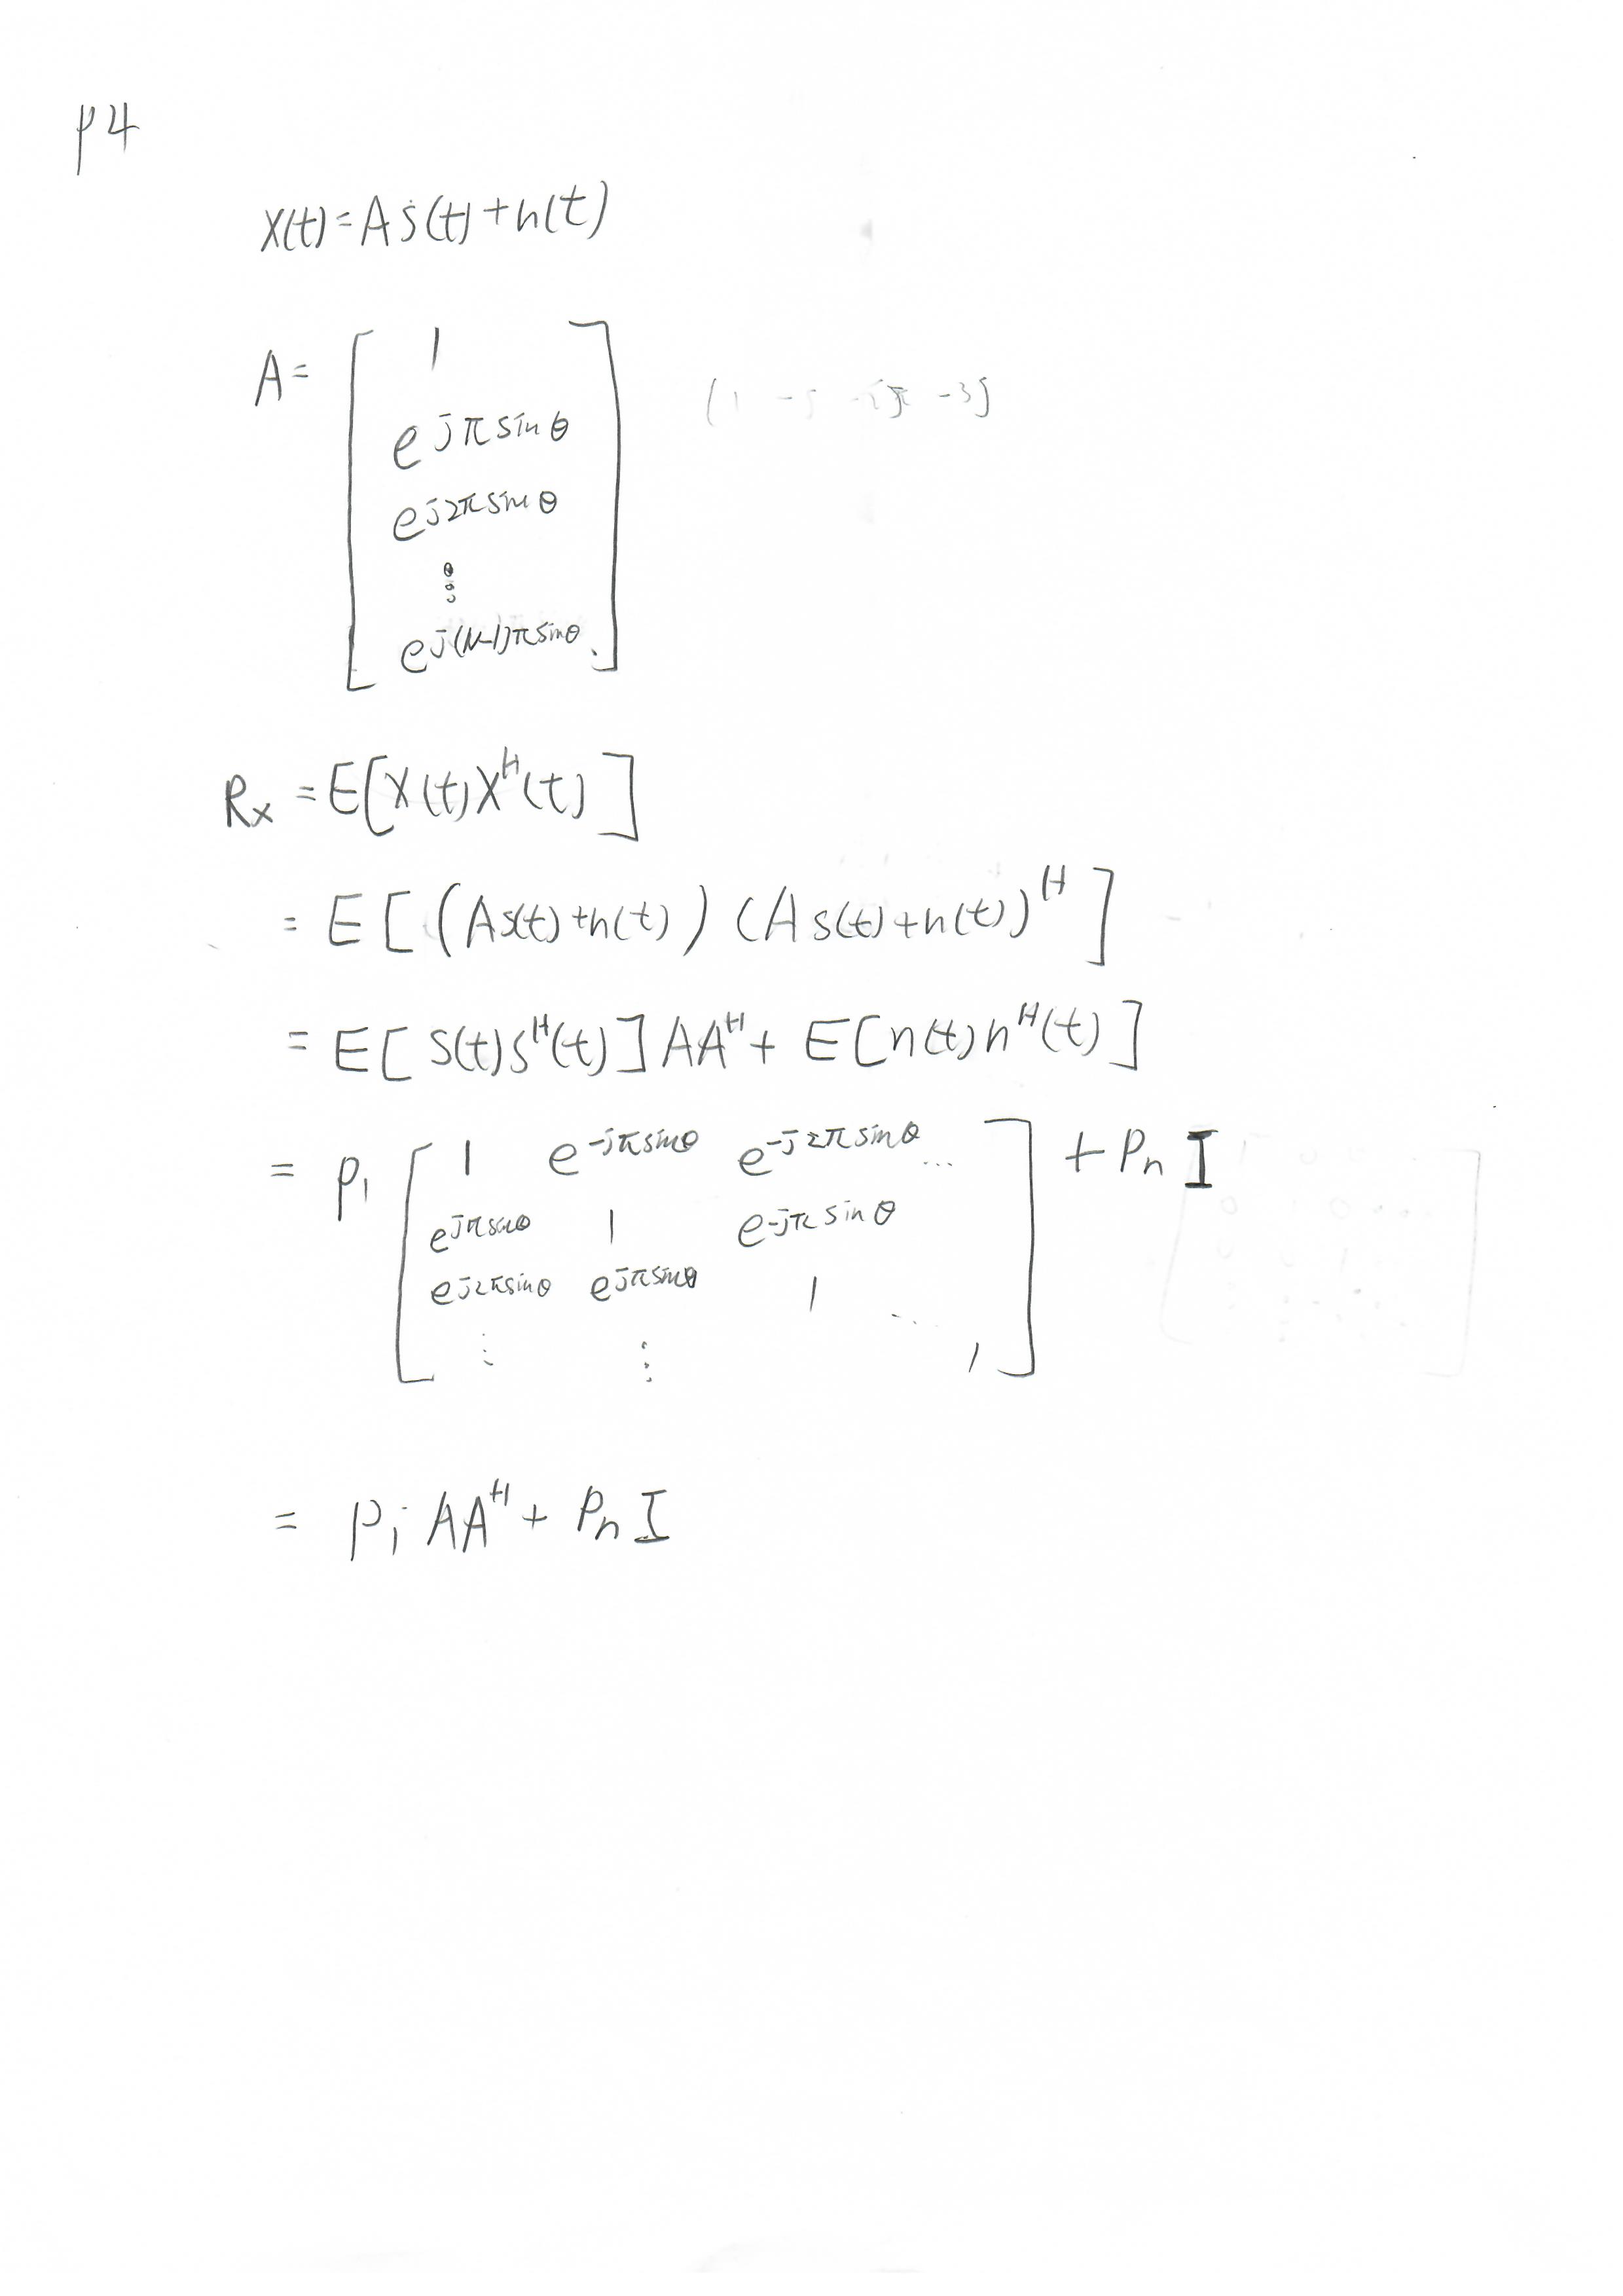 P4
X(t)=As(t)+n(t)
A= [ 1
e^{jπsinθ}
e^{j2πsinθ}
⋮
e^{j(N-1)πsinθ} ]
Rx = E[X(t)X^H(t)]
= E[(As(t)+n(t))(As(t)+n(t))^H]
= E[s(t)s^H(t)]AA^H + E[n(t)n^H(t)]
= P₁ [ 1 e^{-jπsinθ} e^{-j2πsinθ} ... ] + Pn I
e^{jπsinθ} 1 e^{-jπsinθ}
e^{j2πsinθ} e^{jπsinθ} 1 ...
⋮ ⋮ 1
= P₁ AA^H + Pn I